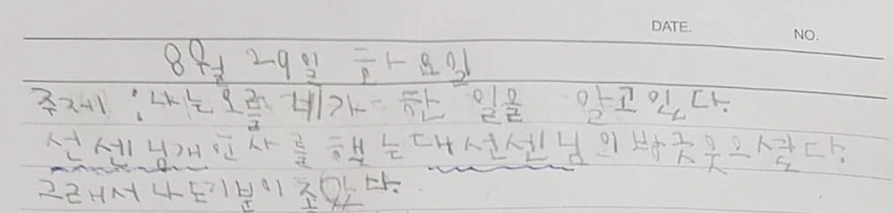 DATE. NO.
8월 29일 화요일
주제 : 나는 오늘 네가 한 일을 알고 있다.
선셍님개 인사를 했는대 선셍님이 방긋 웃으셨다.
그래서 나도 기분이 조았다.